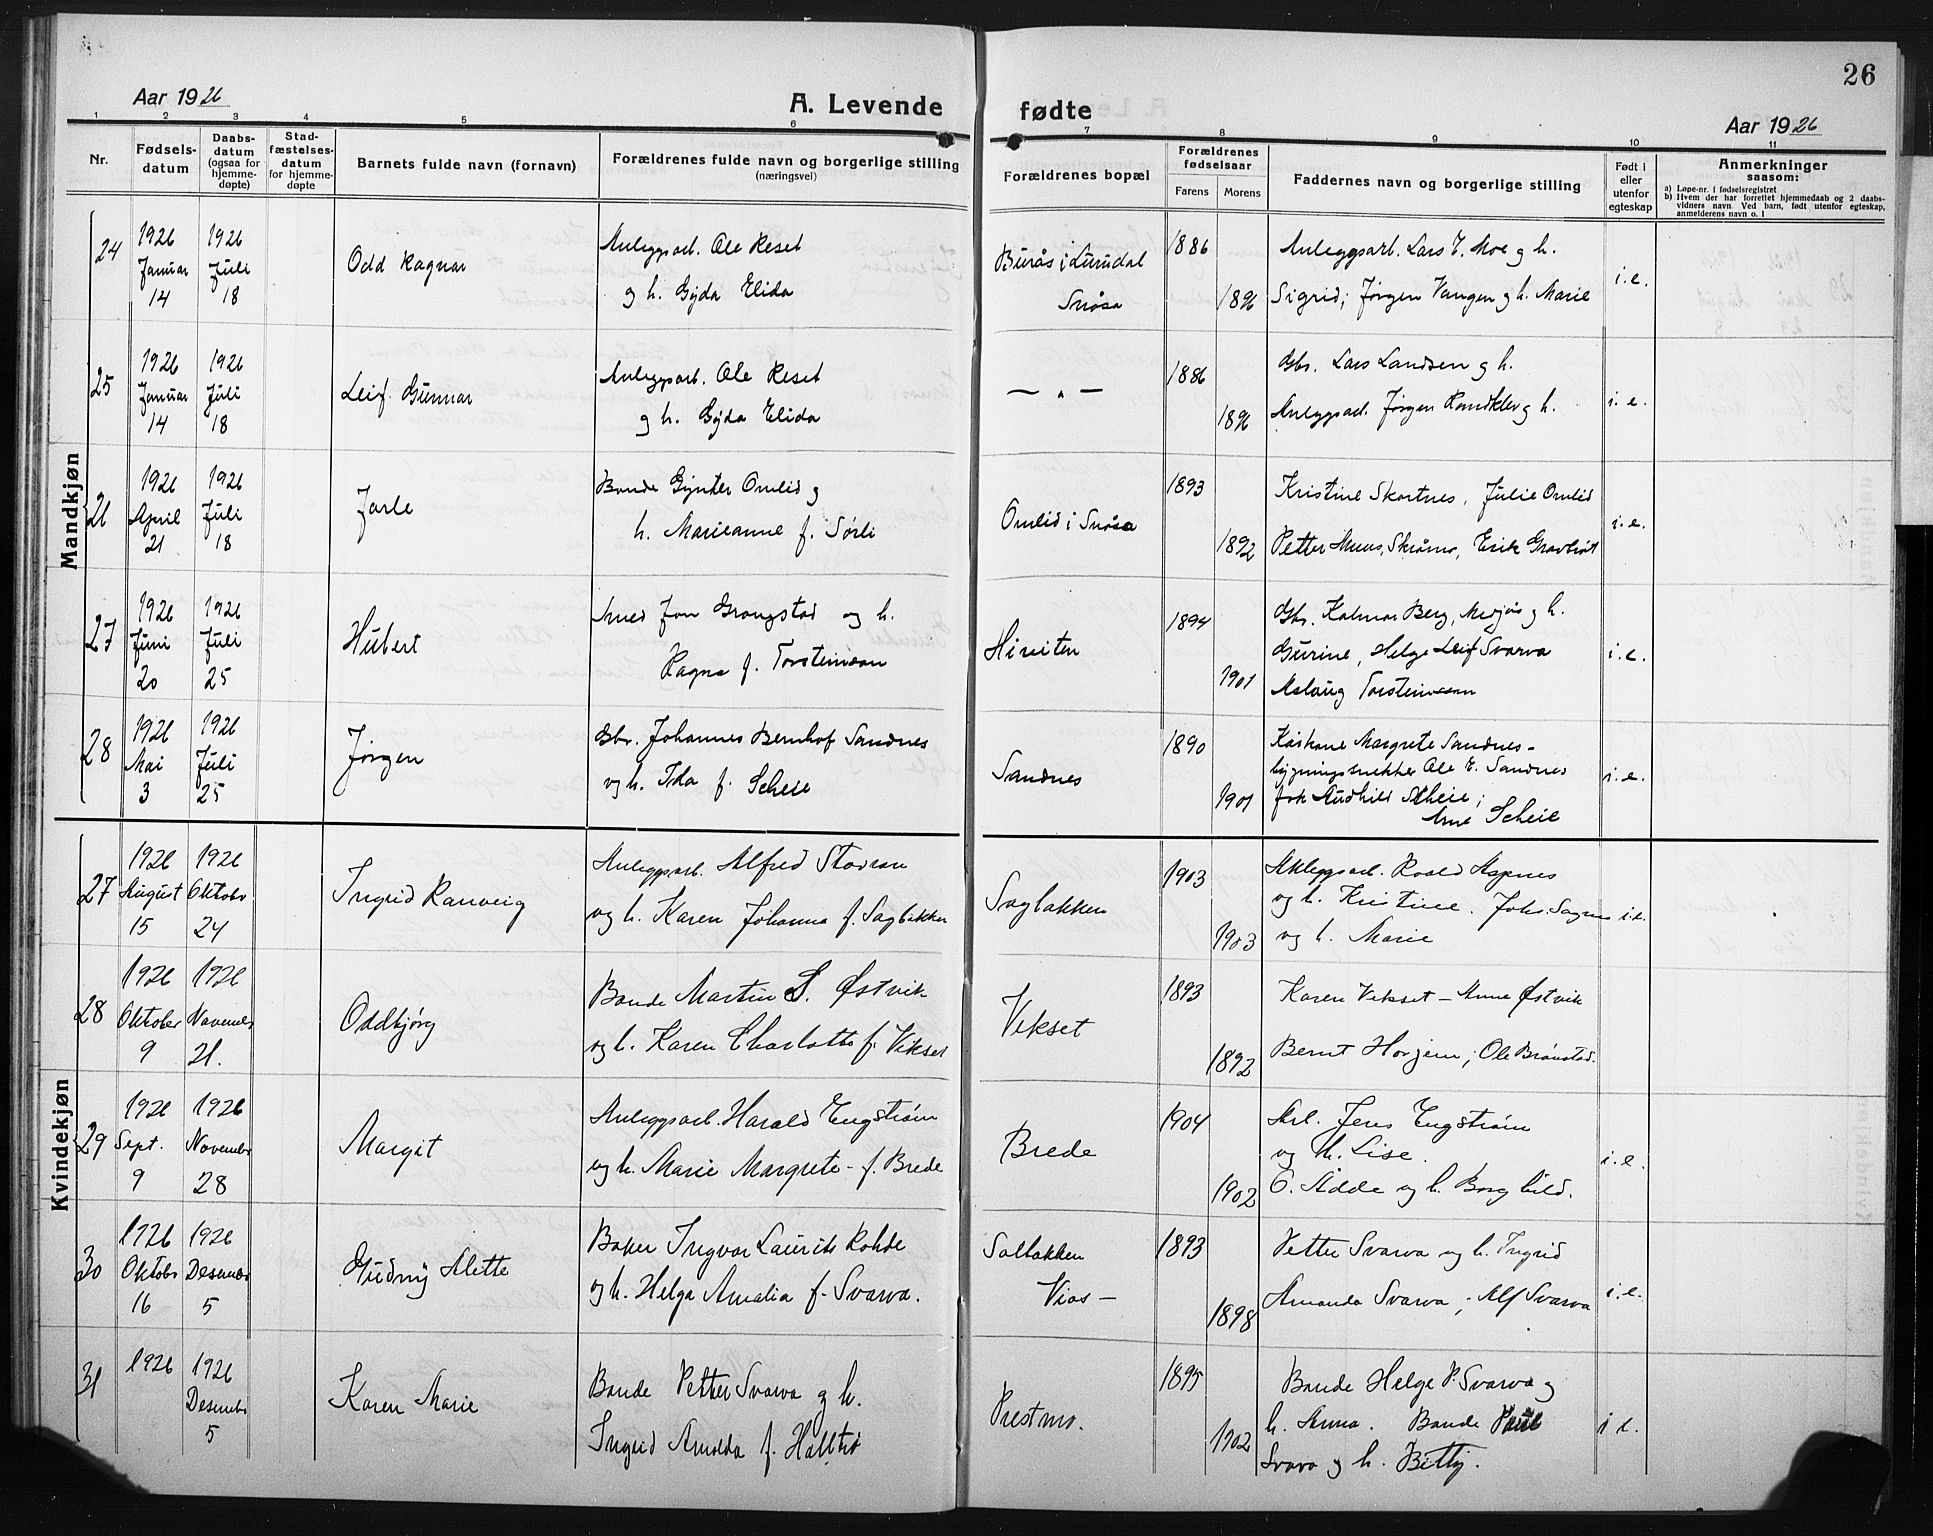 26
Aar 1926
A. Levende fødte
Aar 1926
1 2 3 4 5 6 7 8 9 10 11
Nr.
Fødsels-
datum
Daabs-
datum
(ogsaa for
hjemme-
døpte)
Stad-
fæstelses-
datum
for hjemme-
døpte
Barnets fulde navn (fornavn)
Forældrenes fulde navn og borgerlige stilling
(næringsvei)
Forældrenes bopæl
Forældrenes
fødselsaar
Farens Morens
Faddernes navn og borgerlige stilling
Født i
eller
utenfor
egteskap
Anmerkninger
saasom:
a) Løpe-nr. i fødselsregistret
b) Hvem der har forrettet hjemmedaab og 2 daabs-
vidners navn. Ved barn, født utenfor egteskap,
anmelderens navn o. l
Mandkjøn
24
1926 Januar 14
1926 Juli 18
Odd Ragnar
Anleggsarb. Ole Reset
og h. Gyda Elida
Burås i Lurudal
Snåsa
1886
1896
Anleggsarb. Lars E. Moe og h.
Sigrid; Jørgen Vangen og h. Marie
i. e.
25
1926 Januar 14
1926 Juli 18
Leif Gunnar
Anleggsarb. Ole Reset
og h. Gyda Elida
— " —
1886
1896
Gbr. Lars Landsen og h.
Anlegsarb. Jørgen og h.
i. e.
26
1926 April 21
1926 Juli 18
Jarle
Bonde Gynter Omlid og
h. Marieanne f. Sørli
Omlid i Snåsa
1893
1892
Kristine Skartnes, Julie Omlid
Petter Muus, Erik
i. e.
27
1926 Juni 20
1926 Juli 25
Hubert
Smed Jon Grongstad og h.
Ragna f. Torsteinsen
1894
1901
Gbr. Kalmar Berg, og h.
Gurine, Helge Leif Svarva
Aslaug Torsteinsen
i. e.
28
1926 Mai 3
1926 Juli 25
Jørgen
Gbr. Johannes Bernhof Sandnes
og h. Ida f. Scheie
Sandnes
1890
1901
Kaarkone Margrete Sandnes –
bygningssnekker Ole E. Sandnes
frk Audhild Scheie;
Arne Scheie
i. e.
Kvindekjøn
27
1926 August 15
1926 Oktober 24
Ingrid Ranveig
Anleggsarb. Alfred Stavran
og h. Karen Johanna f. Sagbakken
Sagbakken
1903
1903
Anleggsarb. Roald Aspnes
og h. Kristine. Johs. Sagmo
og h. Marie
i. e.
28
1926 Oktober 9
1926 November 21.
Oddbjørg
Bonde Martin S. Østvik
og h. Karen Charlotte f. Vikset
Vekset
1893
1892
Karen Vekset – Anne Østvik
Bernt Horjem; Ole Brønstad.
29
1926 Sept. 9
1926 November 28
Margit
Anleggsarb. Harald Engstrøm
og h. Marie Margrete – f. Brede
Brede
1904
1902
Arb. Jens Engstrøm
og h. Lise.
O. Ådde og h. Borghild.
i. e.
30
1926 Oktobr 16
1926 Desember 5
Gudny Alette
Baker Ingvar Laurits Rohde
og h. Helga Amalia f. Svarva.
Solbakken
Vios –
1893
1898
Petter Svarva og h. Ingrid
Amanda Svarva; Alf Svarva
i. e.
31
1926
1926 Desembr 5
Karen Marie
Bonde Petter Svarva og h.
Ingrid Arnolda f. Halltrø
Prestmo.
1895
1902
Bonde Helge P. Svarva og
h. Anna. Bonde Paul
Svarva og h. Betty.
i. e.